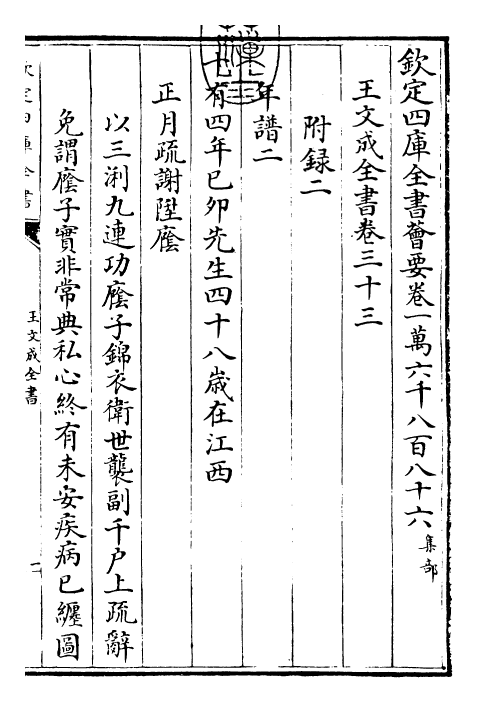 欽定四庫全書薈要卷一萬六千八百八十六集部
王文成全書卷三十三
附録二
年譜二
有四年已卯先生四十八歳在江西
正月疏謝陞廕
以三浰九連功廕子錦衣衛世襲副千户上疏辭
免謂廕子實非常典私心終有未安疾病已纏圖
欽定四庫全書
王文成全書
一